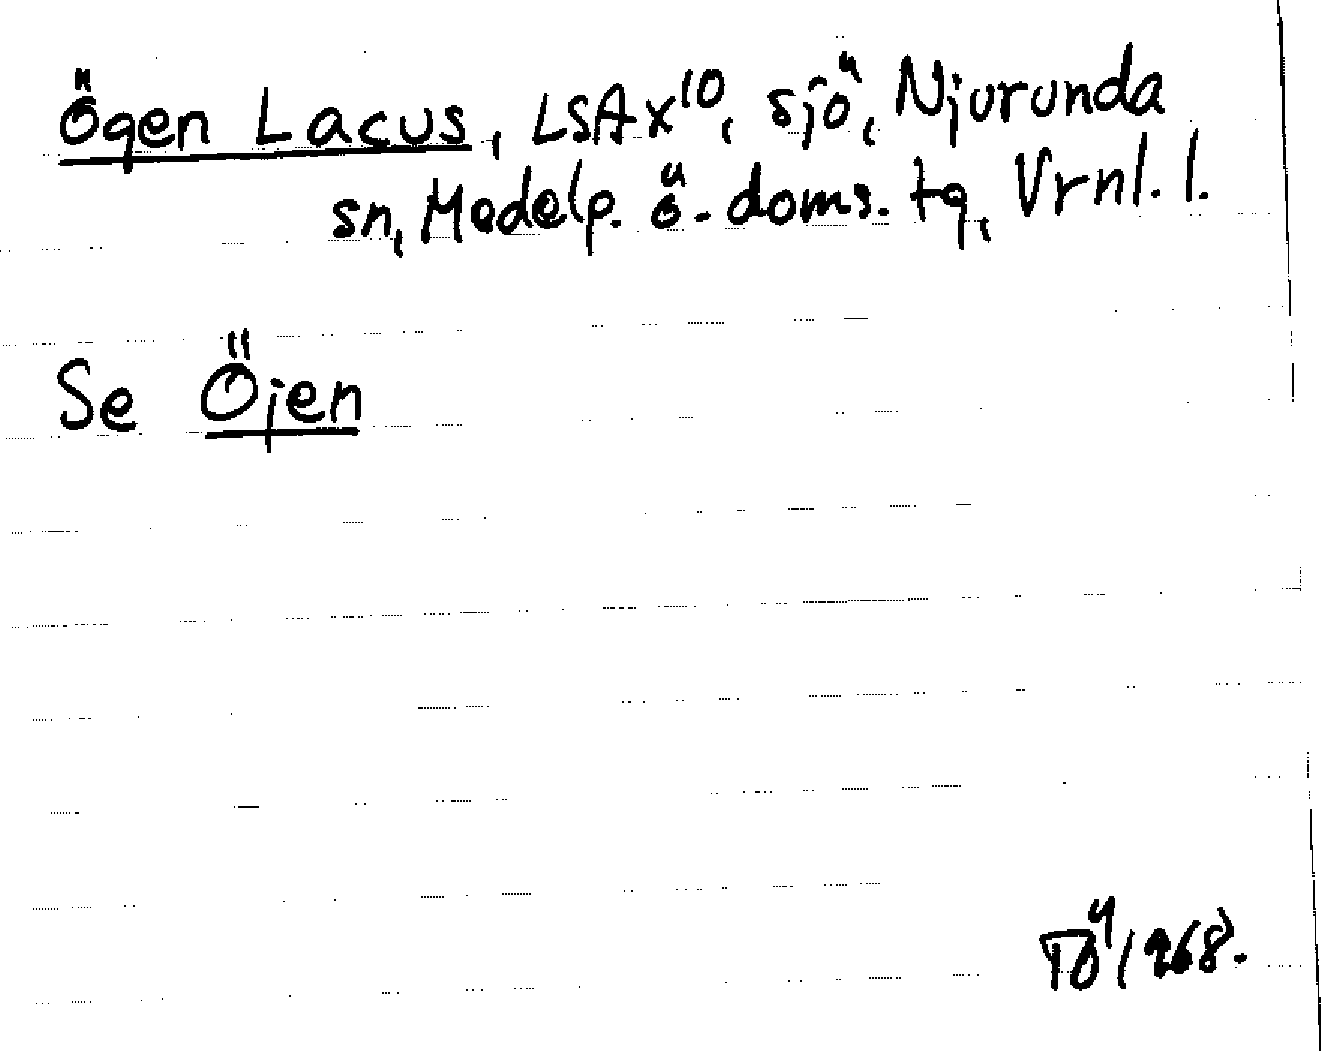 Ögen Lacus, LSA x10, sjö, Njurunda
sn, Medelp. ö. doms. tg, Vrnl. l.
Se Öjen
TÖ 1968.